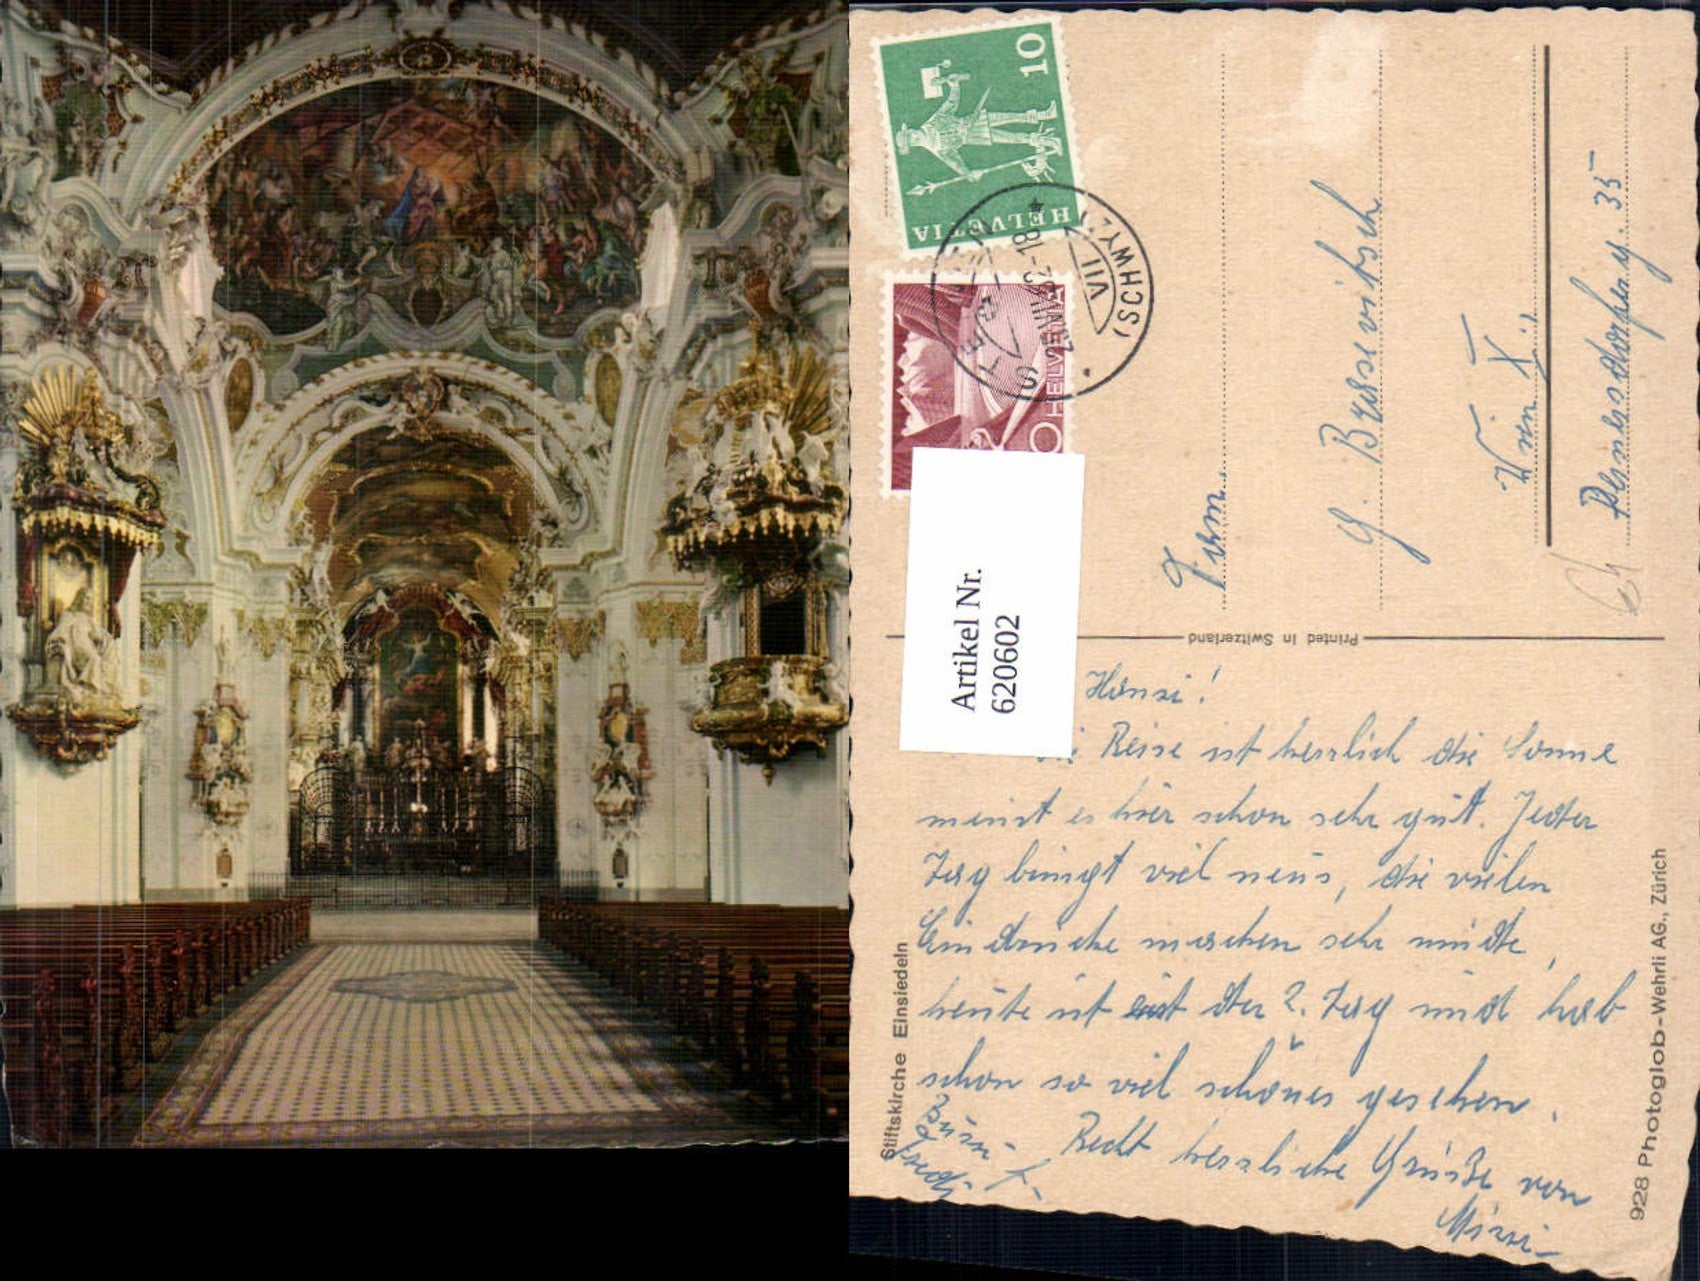 HELVETIA 10
HELVETIA
(SCHWYZ)
VII
Artikel Nr.
6206602
Printed in Switzerland
Fam.
G.
Wien X.
35
Hansi!
Reise ist herrlich die Sonne
meint es hier schon sehr gut. Jeder
Tag bringt viel neues, die vielen
Eindrücke machen sehr müde,
heute ist erst der 2. Tag und hab
schon so viel schönes gesehen.
Recht herzliche Grüße von
Mizzi
Stiftskirche Einsiedeln
928 Photoglob-Wehrli AG., Zürich